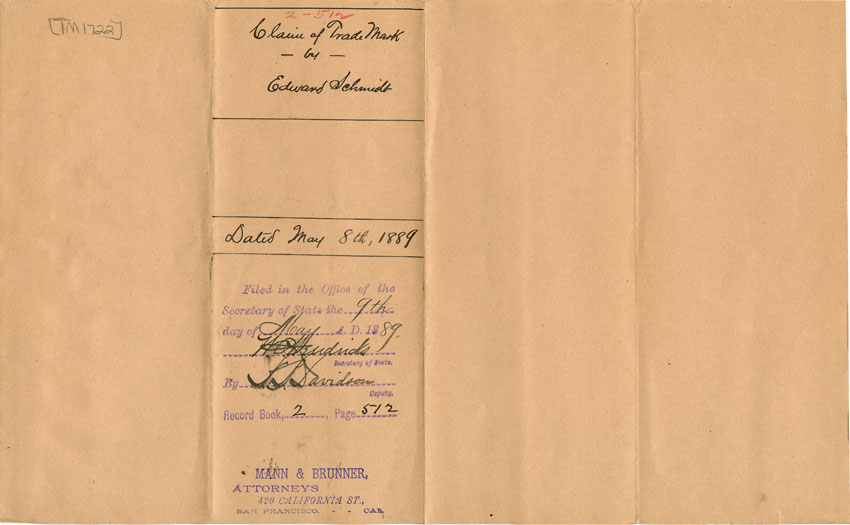 [TM1722]
2-512
Claim of Trade Mark
- by -
Edward Schmidt
Dated May 8th, 1889
Filed in the Office of the
Secretary of State the 9th
day of May A. D. 1889.
W.C. Hendricks
Secretary of State.
By Davidson
Deputy.
Record Book, 2, Page 512
MANN & BRUNNER,
ATTORNEYS
420 CALIFORNIA ST.,
SAN FRANCISCO, - - CAL.